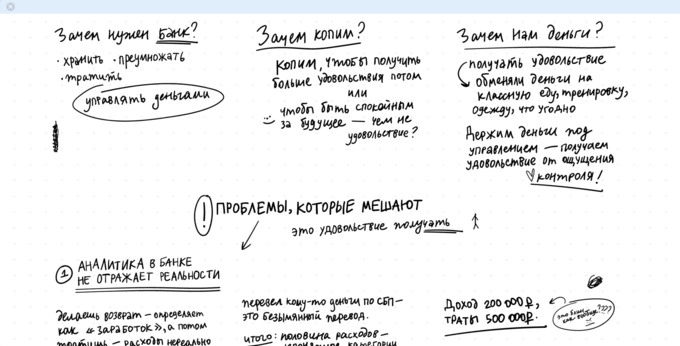 Зачем нужен банк?
· хранить · преумножать
· тратить
управлять деньгами
Зачем копим?
копим, чтобы получить
больше удовольствия потом
или
чтобы быть спокойным
за будущее — чем не
удовольствие?
Зачем нам деньги?
получать удовольствие
обменяли деньги на
классную еду, тренировку,
одежду, что угодно
Держим деньги под
управлением — получаем
удовольствие от ощущения
контроля!
! ПРОБЛЕМЫ, КОТОРЫЕ МЕШАЮТ
это удовольствие получать
1 АНАЛИТИКА В БАНКЕ
НЕ ОТРАЖАЕТ РЕАЛЬНОСТИ
делаешь возврат — определяет
как «заработок», а потом
расходы нереально
перевел кому-то деньги по СБП —
это безымянный перевод.
итого: половина расходов —
категории
Доход 200 000₽,
траты 500 000₽.